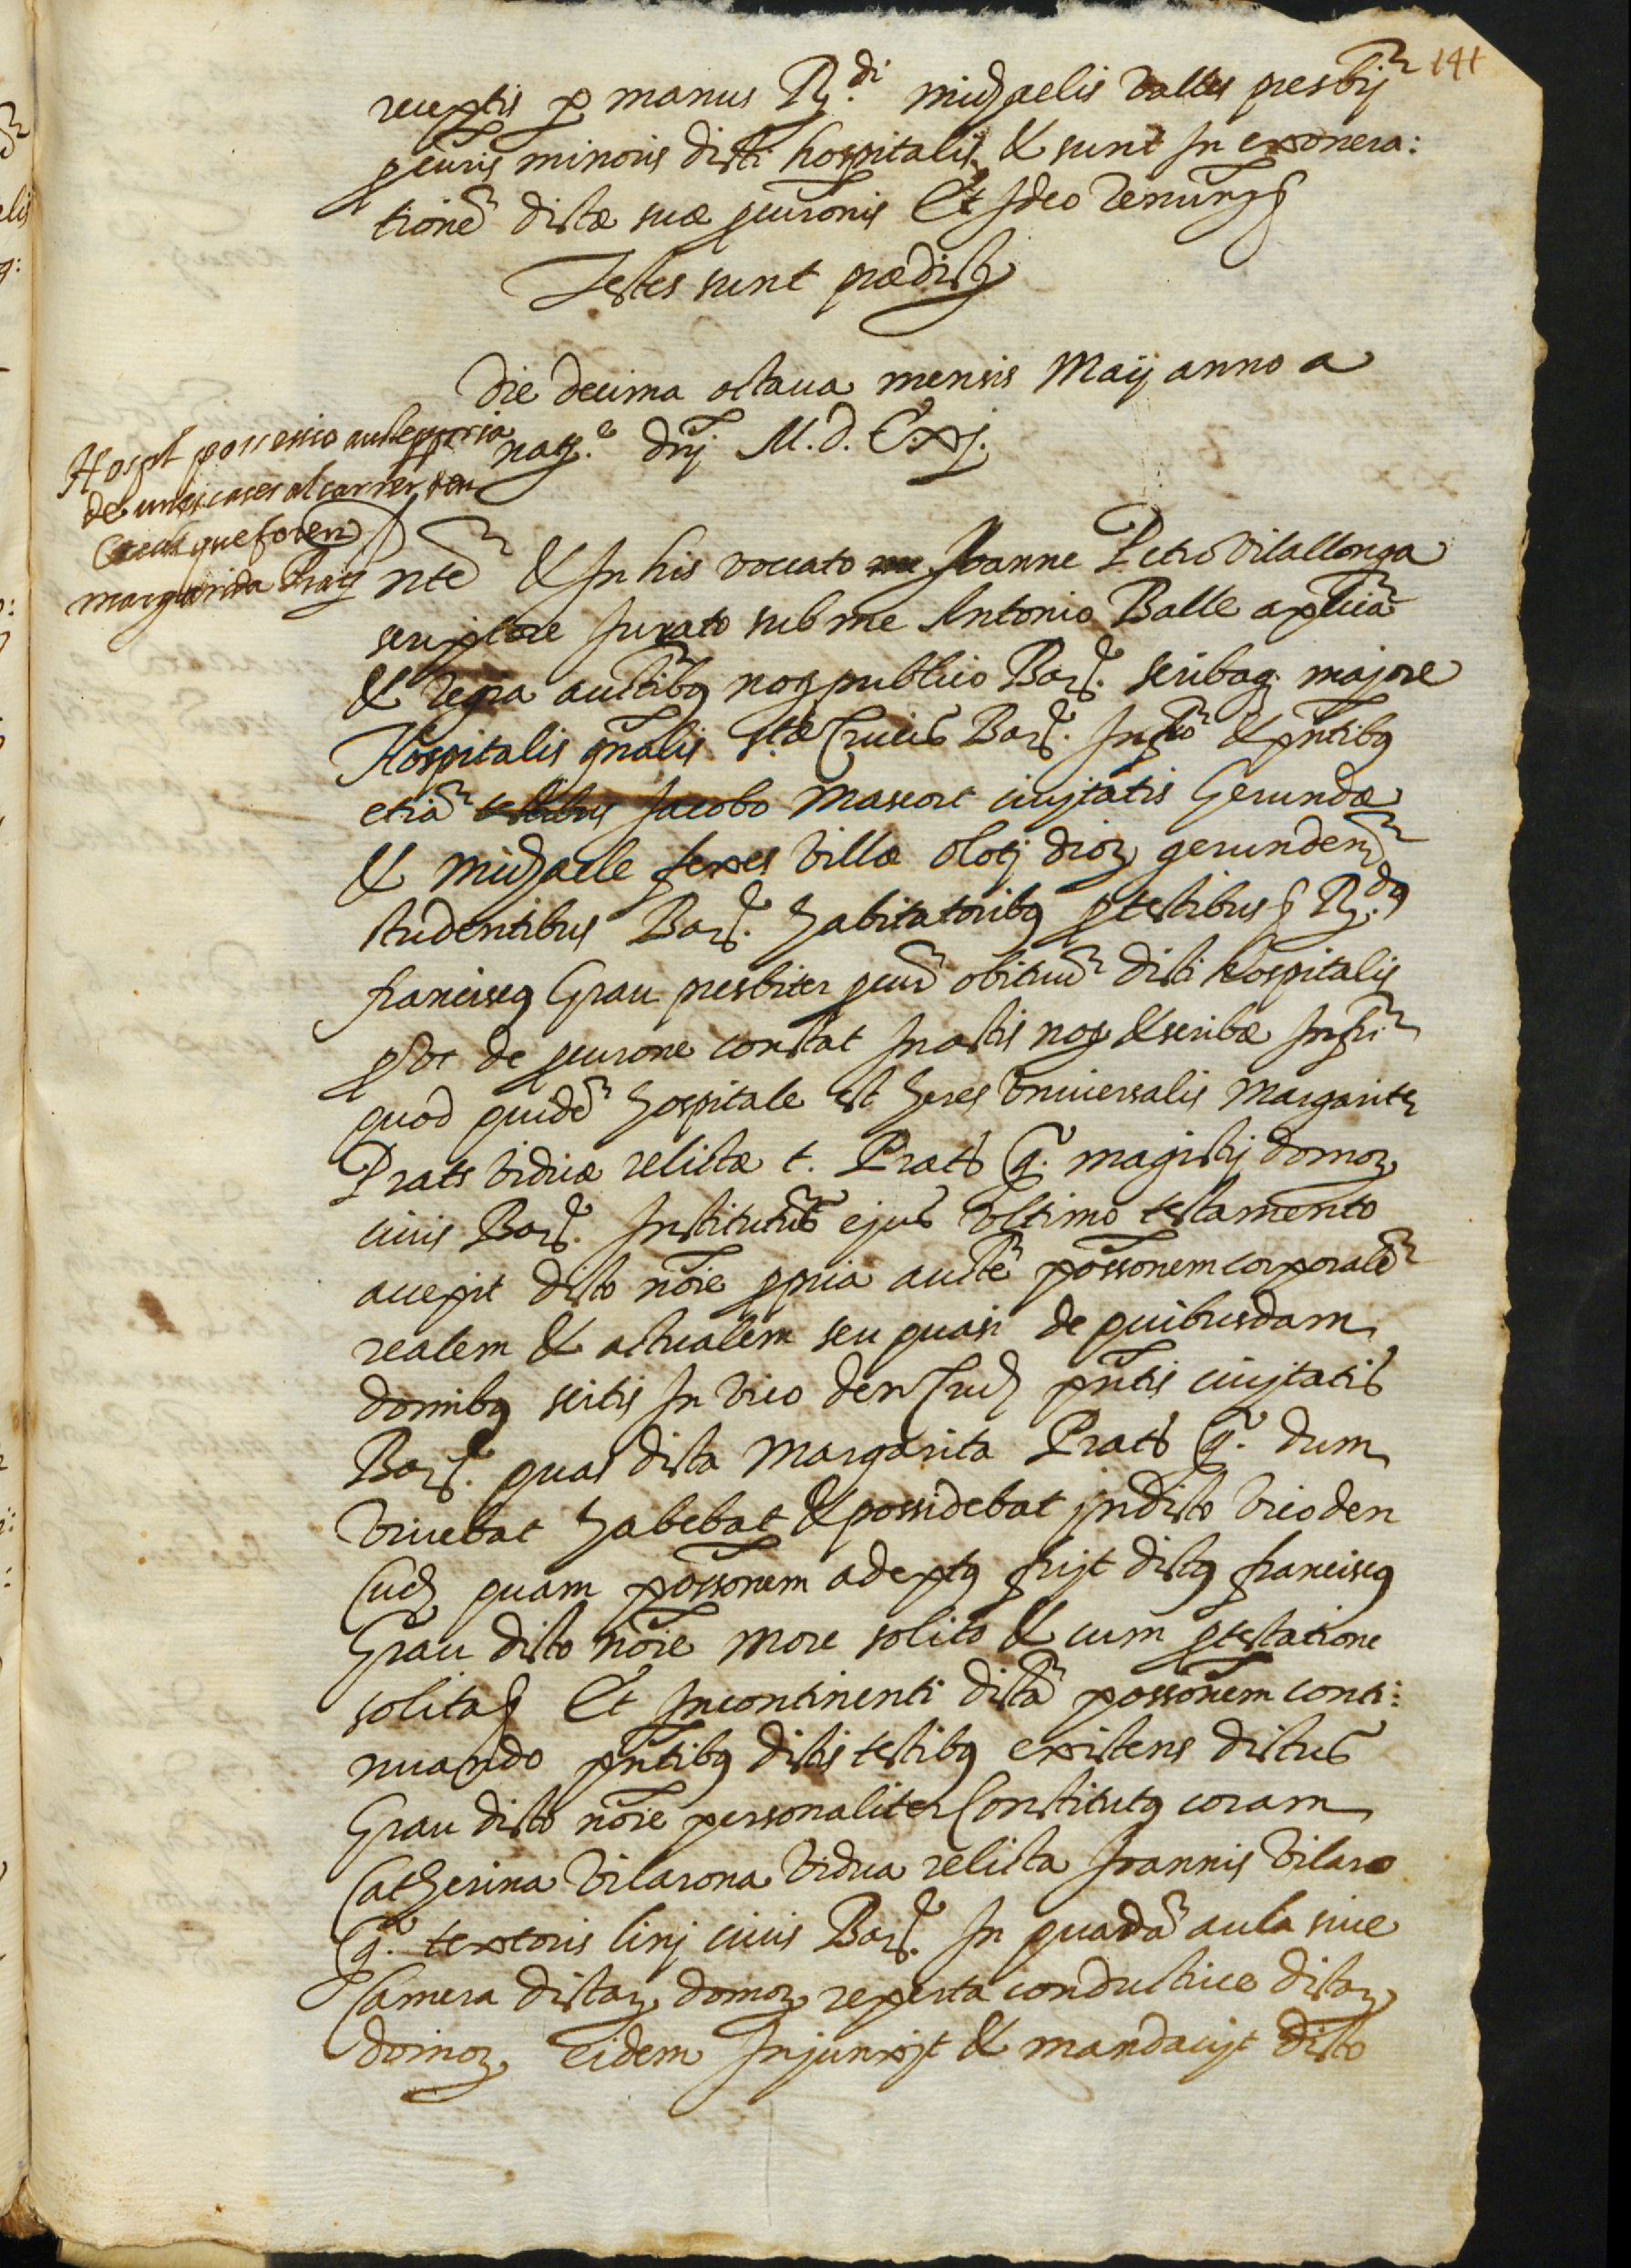 141
receptis p manus R.di michaelis Valles presbij
pcuris minoris dicti hospitalis & sunt In exonera:
tionē dictæ suæ pcuronis Et Ideo Renung
Testes sunt prædicti
Die decima octava mensis Maij anno a
natᵉ. dnj M.d.C.xj.
Hospl possessio aucte ppria
de unes cases al carrer den
Cuch que foren
margarida Prats
Pnte & In his vocato Joanne Petro Vilallonga
scriptore Jurato sub me Antonio Batlle aplica
& regia auctibq notpublico Barᵉ. scribaq majore
Hospitalis gnalis stæ Crucis Barᵉ. Infro & pntibq
etiā Jacobo Mascort ciujtatis Gerundæ
& michaele ferres villæ olotj dioz gerunden
studentibus Barᵉ. habitatoribq ptestibus R.dq
franciscq Grau presbiter pcurʳ obituū dicti hospitalis
pvt de pcurone constat In actis not & scribæ Infri
quod quidē hospitale est heres Vniversalis Margaritæ
Prats viduæ relictæ t. Prats q. magistrj domoz
civis Barᵉ. Institutus ejus Vltimo testamento
accepit dicto noīe ppria aucte possonem corporalē
realem & actualem seu quasi de quibusdam
domibq scitis In vico den Cuch pntis ciujtatis
Barᵉ. quas dicta Margarita Prats q. dum
vivebat habebat & possidebat jn dicto vico den
Cuch quam possonem adeptq fuit dictq franciscq
Grau dicto noīe more solito & cum ptestatione
solita Et Incontinenti dictā possonem conti:
nuando pntibq dictis testibq existens dictus
Grau dicto noīe personaliter Constitutq coram
Catherina Vilarona vidua relicta Joannis Vilaro
q. textoris linj civis Barᵉ. In quadā aula sive
Camera dictaz domoz reperta conductrice dictaz
domoz eidem Injunxit & mandavit dicto